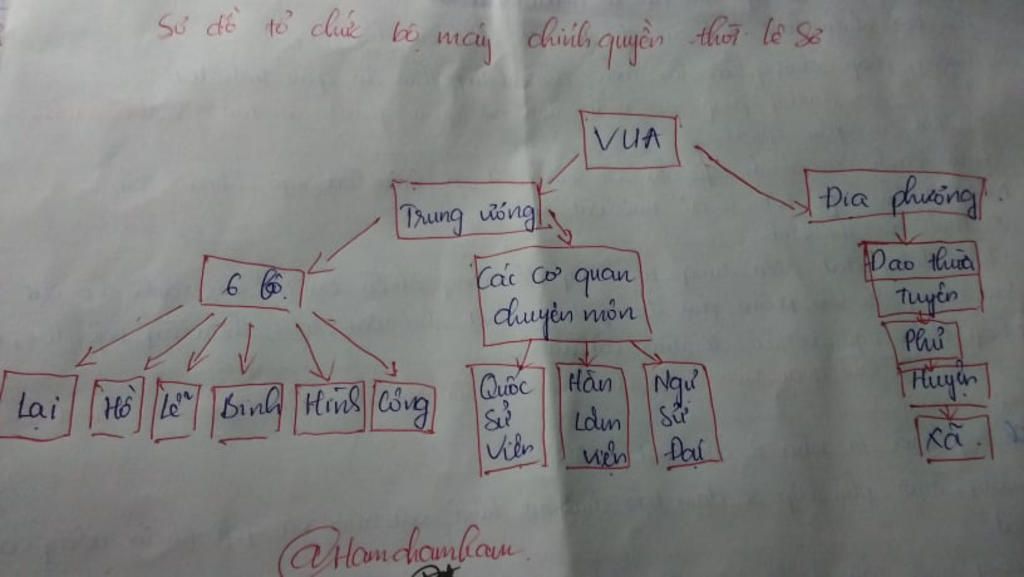 Sơ đồ tổ chức bộ máy chính quyền thời Lê Sơ
VUA
Trung ương
Địa phương
6 Bộ.
Các cơ quan
chuyên môn
Dao thừa
tuyên
Phủ
Huyện
Xã.
Lại
Hồ
Lễ
Binh
Hình
Công
Quốc
Sử
Viện
Hàn
Lâm
viện
Ngự
Sử
Đai
@Hamchamham